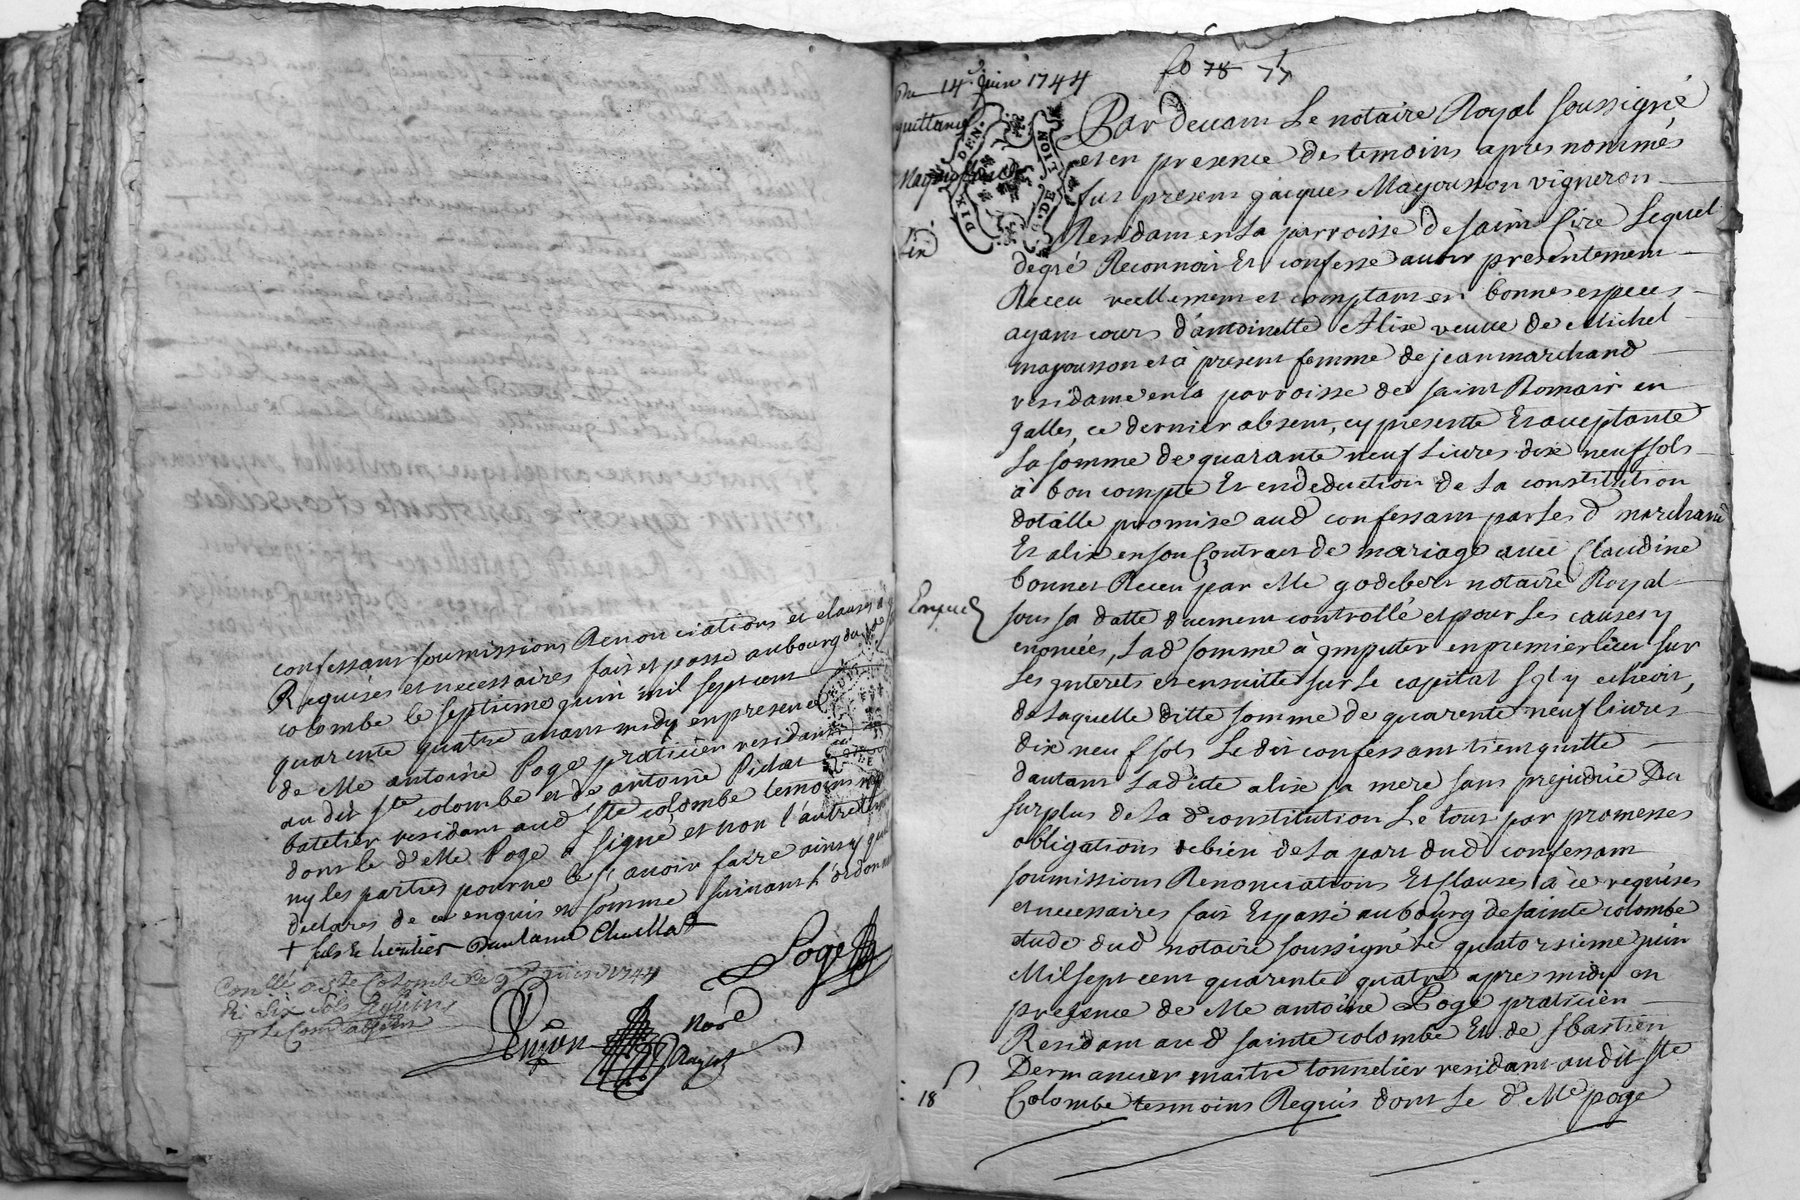 confessant soumissions Renonciations et clauses a
Requises et necessaires fait et passé au bourg du d ste
colombe le septieme juin mil sept cent
quarente quatre avant midy en presence
de Me antoine Poge praticien residant
au dit ste colombe et de antoine Pichat
batelier residant aud ste colombe temoins
dont le d Me Poge a signé et non l'autre
ny les parties pour ne le sçavoir faire ainsy
declarés de ce enquis et sommé suivant l'ordon
+ fils & heritier
Conllé a ste Colombe le 9e juin 1744
Poge
Nore
Du 14e juin 1744
quittance
Mayousson
Lix
fo 78 77
DIX DEN.
G. DE LION
Par devant Le notaire Royal soussigné
et en presence des temoins apres nommés
fut present jacques Mayousson vigneron
Residant en la parroisse de saint Cire Lequel
de gré Reconnoit Et confesse avoir presentement
Receu reellement et comptant en bonnes especes
ayant cours d'antoinette Alix veuve de Michel
mayousson et a present femme de jean marchand
residante en la parroisse de saint Romain en
galles, ce dernier absent, cy presente Et acceptante
La somme de quarante neuf Livres dix neuf sols
à bon compte Et en deduction de La constitution
dotalle promise aud confessant par Les d marchand
Et alix en son Contract de mariage avec Claudine
bonnet Receu par Me godebert notaire Royal
sous sa datte duement controllé et pour Les causes y
enoncées, Lad somme à jmputer en premier lieu sur
Les jnterets et ensuitte sur Le capital s'il y echeoit,
de Laquelle ditte somme de quarente neuf livres
dix neuf sols Le dit confessant tient quitte
d'autant Laditte alix sa mere sans prejudice Du
surplus de La d constitution Le tout par promesses
obligations de bien de La part dud confessant
soumissions Renonciations Et Clauses à ce requises
et necessaires fait Et passé au bourg de sainte colombe
etude dud notaire soussigné Le quatorsieme juin
Mil sept cent quarente quatre apres midy en
presence de Me antoine Poge praticien
Residant aud sainte colombe Et de sbastien
Dermancier maitre tonnelier residant audit ste
Colombe tesmoins Requis dont Le d Me poge
18